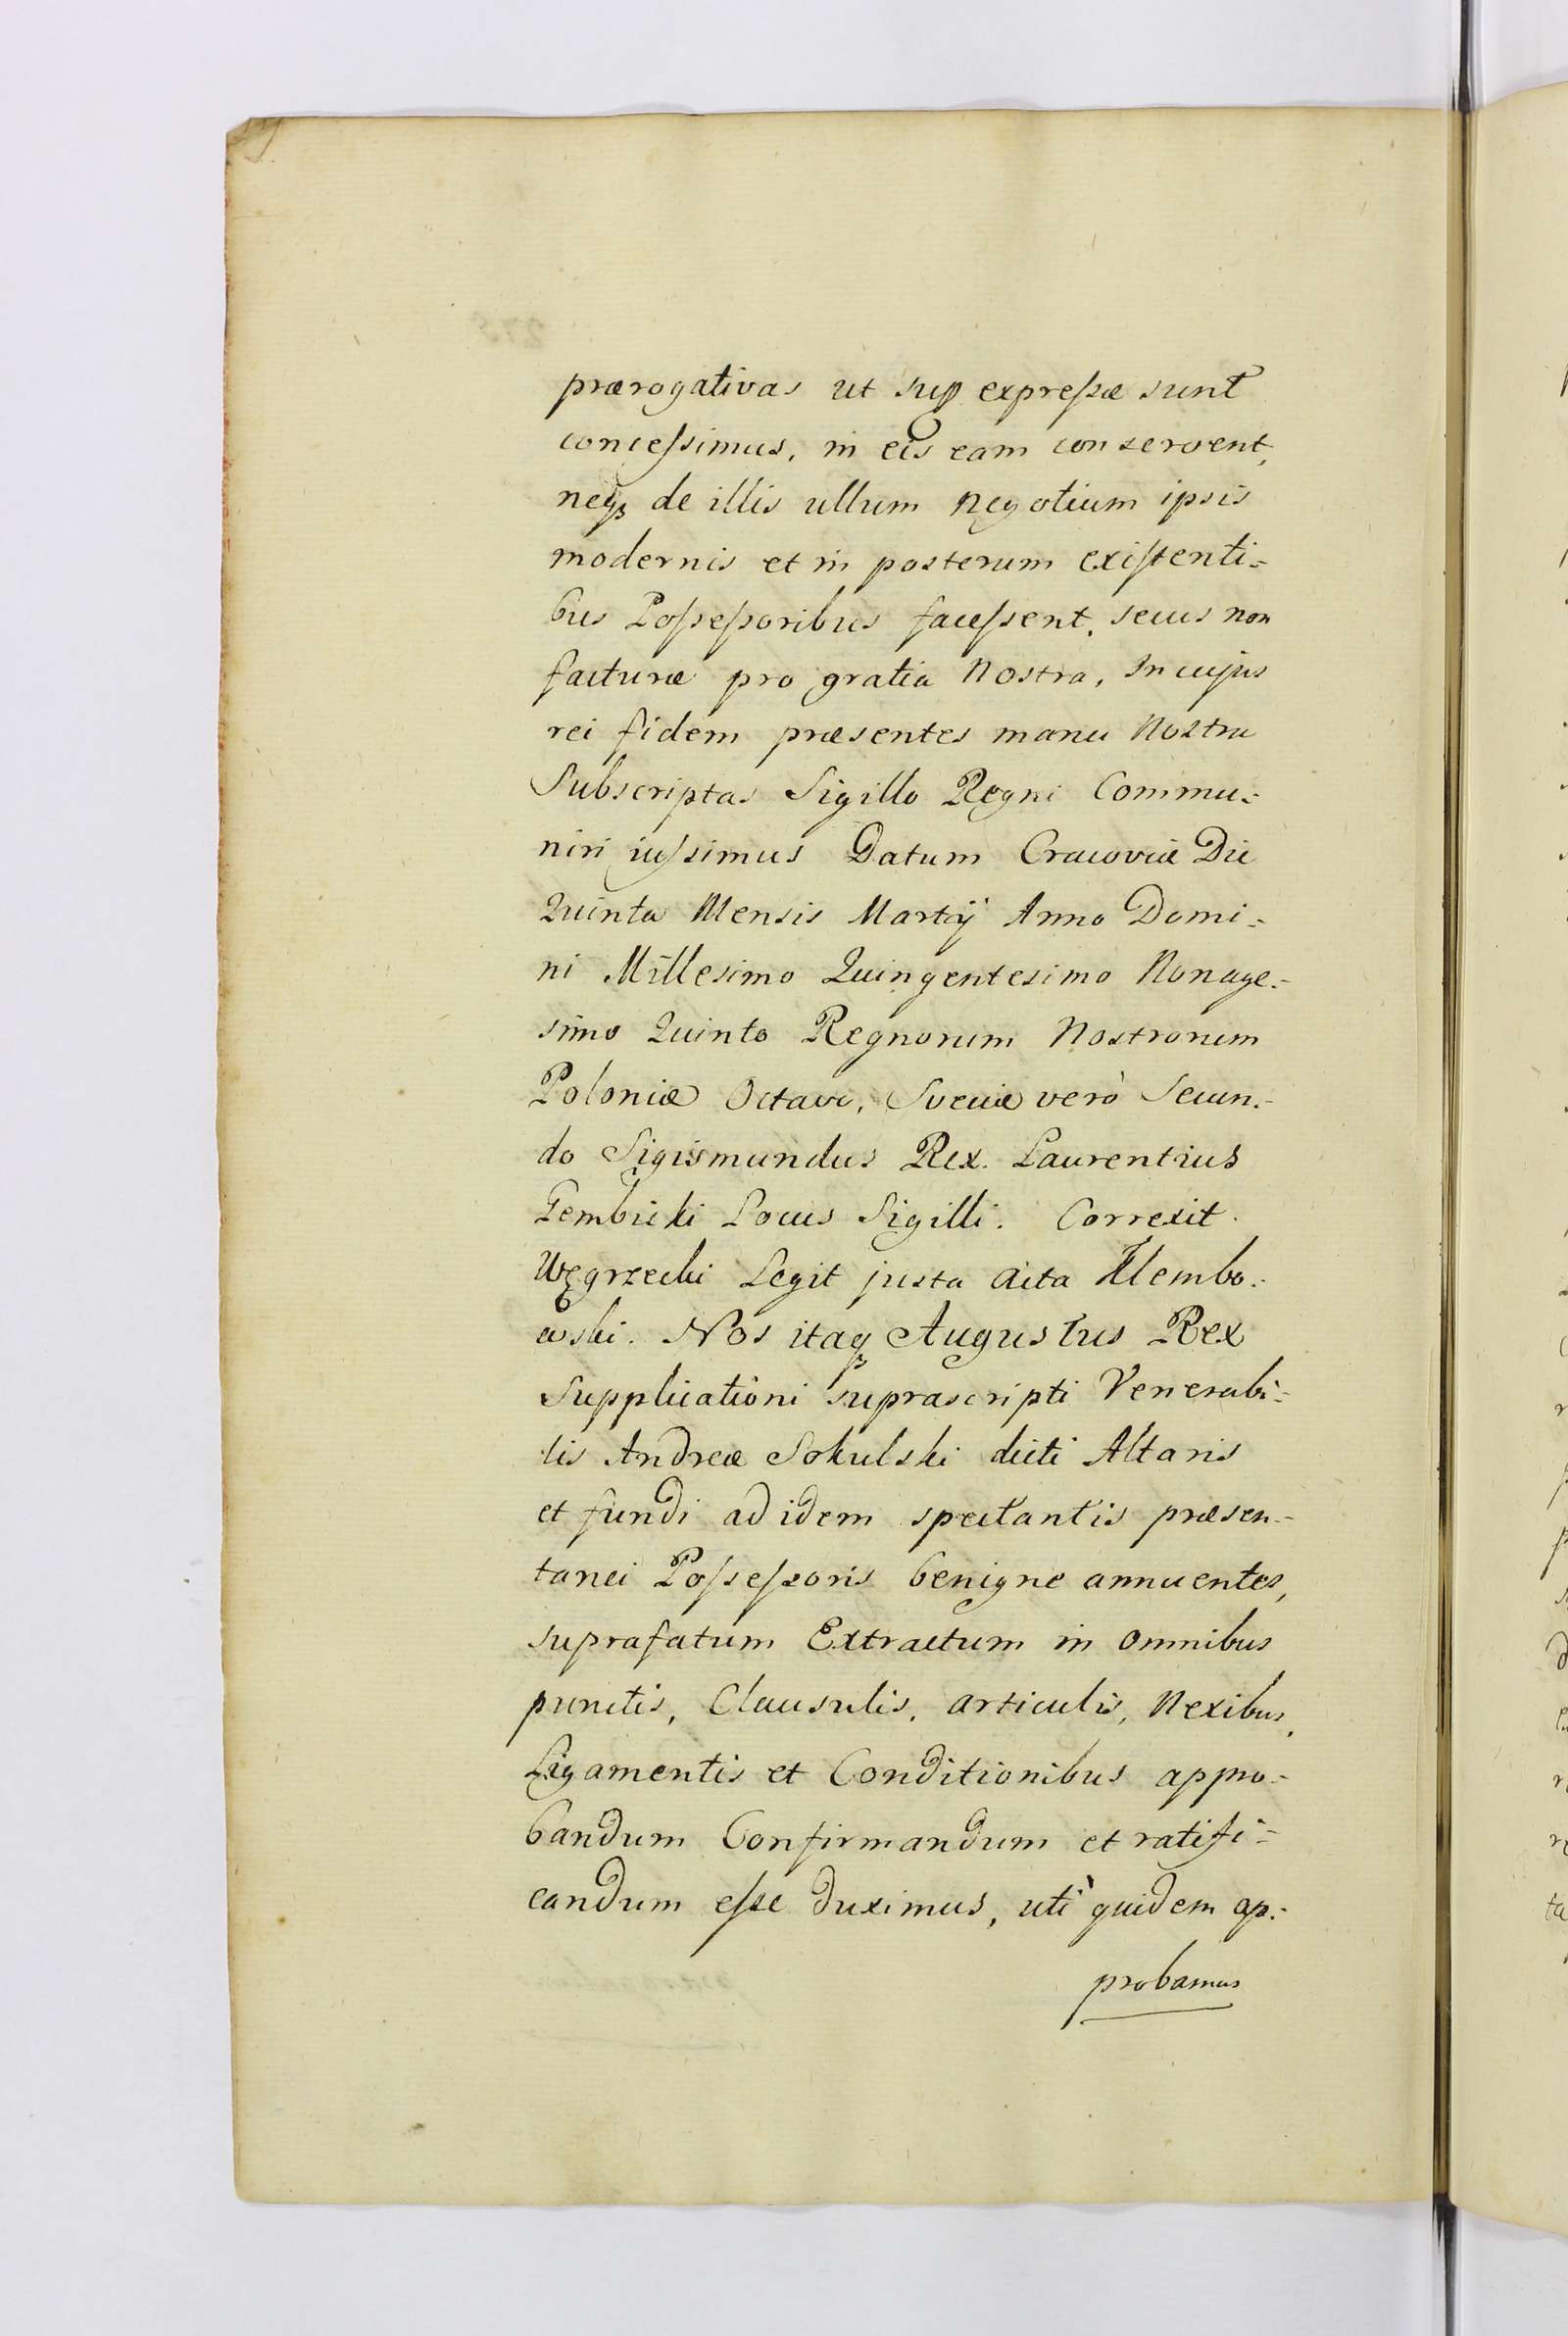 prærogativas ut sup expreſsæ sunt
conceſsimus, in eis eam conservent,
neqz de illis ullum negotium ipsis
modernis et in posterum exiſtenti=
bus Poſseſsoribus faceſsent, secus non
facturæ pro gratia Nostra, In cujus
rei fidem præsentes manu Nostra
Subscriptas Sigillo Regni Commu=
niri iuſsimus Datum Cracoviæ Die
Quinta Mensis Martÿ Anno Domi=
ni Millesimo Quingentesimo Nonage=
simo Quinto Regnorum Nostrorum
Poloniæ Octavo, Sveciæ verò Secun=
do Sigismundus Rex. Laurentius
Gembicki Locus Sigilli. Correxit.
Węgrzecki Legit juxta Acta Klembo=
wski. Nos itaqz Augustus Rex
Supplicationi suprascripti Venerabi=
lis Andreæ Sokulski dicti Altaris
et fundi ad idem spectantis præsen=
tanei Poſseſsoris benigne annuentes,
suprafatum Extractum in omnibus
punctis, Clausulis, articulis, Nexibus,
Ligamentis et Conditionibus appro=
bandum Confirmandum et ratifi=
candum eſse duximus, uti quidem ap=
probamus